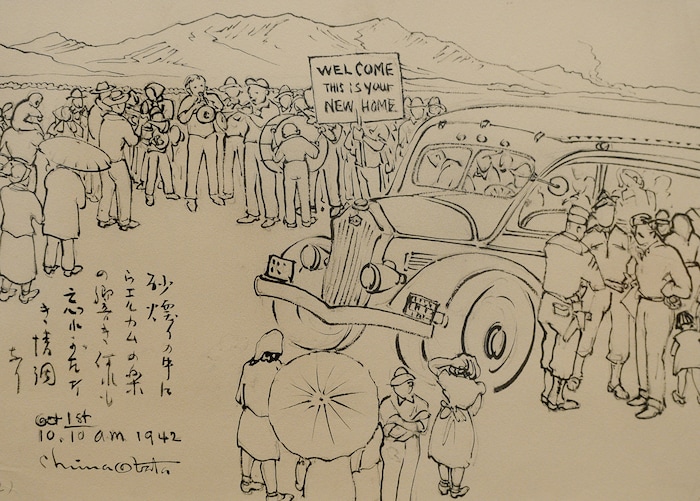 WELCOME
THIS IS your
NEW HOME
砂煙りの中に
エルカムの楽
の響き何れも
忘れがた
き情調
あり
Oct 1st
10.10 am 1942
Chiura Obata